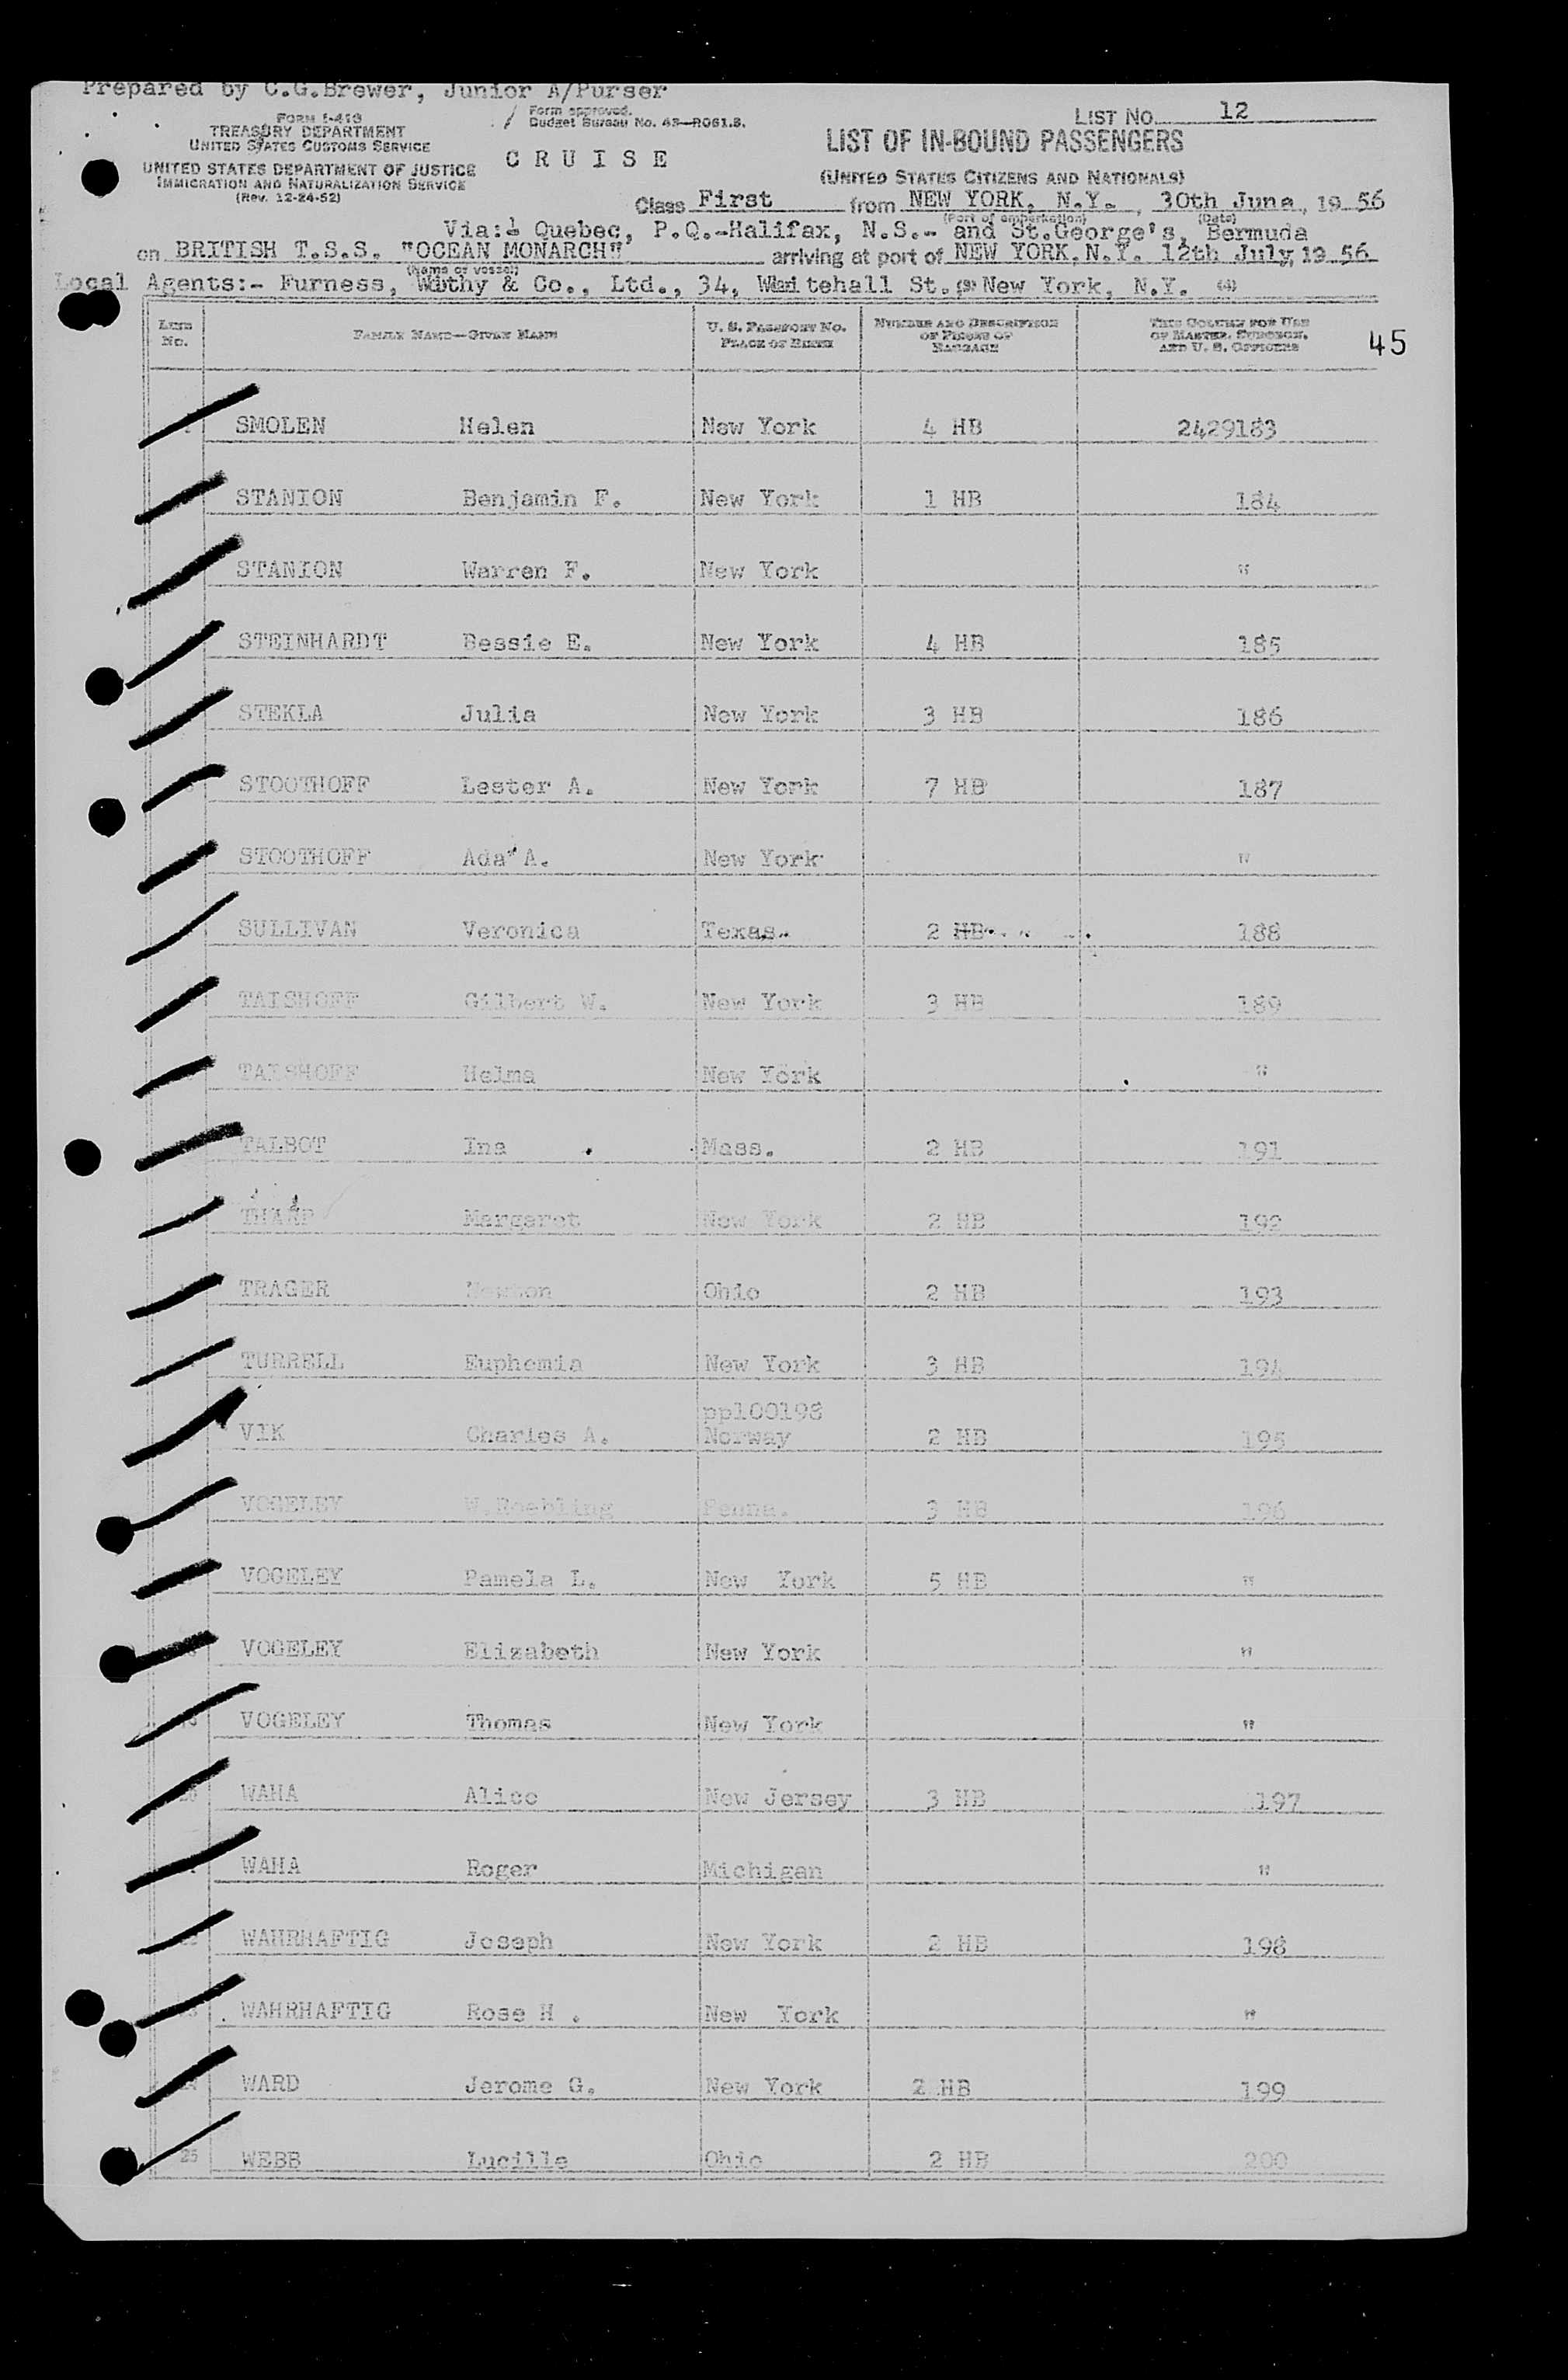 Prepared by C.G.Brewer, Junior A/Purser
FORM I-418
TREASURY DEPARTMENT
UNITED STATES CUSTOMS SERVICE
UNITED STATES DEPARTMENT OF JUSTICE
IMMIGRATION AND NATURALIZATION SERVICE
(Rev. 12-24-52)
Form approved.
Budget Bureau No. 43-R061.3.
CRUISE
LIST NO. 12
LIST OF IN-BOUND PASSENGERS
(UNITED STATES CITIZENS AND NATIONALS)
Class First from NEW YORK, N.Y., 30th June, 19 56
(Port of embarkation) (Date)
Via:- Quebec, P.Q.-Halifax, N.S.- and St.George's, Bermuda
on BRITISH T.S.S. "OCEAN MONARCH" arriving at port of NEW YORK, N.Y. 12th July, 19 56
(Name of vessel)
Local Agents:- Furness, Withy & Co., Ltd., 34, Whitehall St. (3) New York, N.Y. (4)
LINE No. FAMILY NAME—GIVEN NAME U. S. PASSPORT NO. PLACE OF BIRTH NUMBER AND DESCRIPTION OF PIECES OF BAGGAGE THIS COLUMN FOR USE OF MASTER, SURGEON, AND U. S. OFFICERS 45
SMOLEN Helen New York 4 HB 2429183
STANION Benjamin F. New York 1 HB 184
STANION Warren F. New York "
STEINHARDT Bessie E. New York 4 HB 185
STEKLA Julia New York 3 HB 186
STOOTHOFF Lester A. New York 7 HB 187
STOOTHOFF Ada A. New York "
SULLIVAN Veronica Texas 2 HB 188
TAISHOFF Gilbert W. New York 3 HB 189
TAISHOFF Helma New York "
TALBOT Ina Mass. 2 HB 191
THARP Margaret New York 2 HB 192
TRAGER Ohio 2 HB 193
TURRELL Euphemia New York 3 HB 194
pp100198
VIK Charles A. Norway 2 HB 195
VOGELEY W.Roebling Penna. 3 HB 196
VOGELEY Pamela L. New York 5 HB "
VOGELEY Elizabeth New York "
VOGELEY Thomas New York "
WAHA Alice New Jersey 3 HB 197
WAHA Roger Michigan "
WAHRHAFTIG Joseph New York 2 HB 198
WAHRHAFTIG Rose H . New York "
WARD Jerome G. New York 2 HB 199
25 WEBB Lucille Ohio 2 HB 200